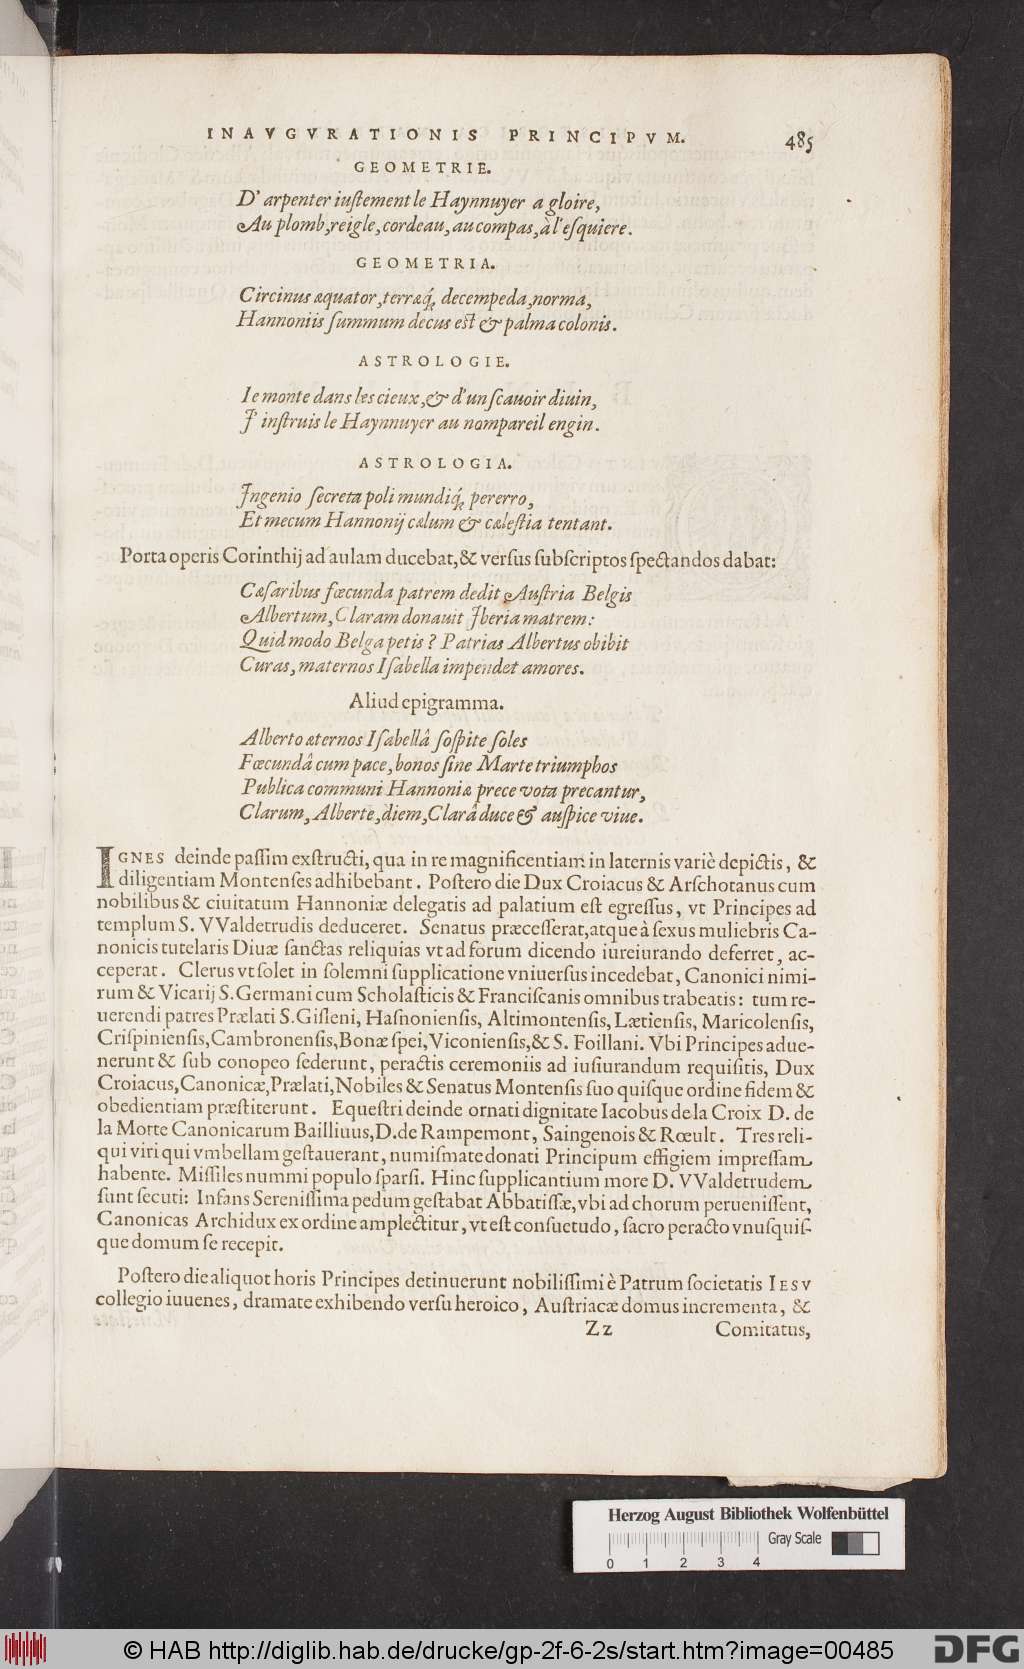 INAVGVRATIONIS PRINCIPVM. 485
GEOMETRIE.
D'arpenter iuſtement le Haynnuyer a gloire,
Au plomb, reigle, cordeau, au compas, à l'eſquiere.
GEOMETRIA.
Circinus æquator, terræq́; decempeda, norma,
Hannoniis ſummum decus eſt & palma colonis.
ASTROLOGIE.
Ie monte dans les cieux, & d'un ſcauoir diuin,
J'inſtruis le Haynnuyer au nompareil engin.
ASTROLOGIA.
Jngenio ſecreta poli mundiq́; pererro,
Et mecum Hannonij cælum & cæleſtia tentant.
Porta operis Corinthij ad aulam ducebat, & verſus ſubſcriptos ſpectandos dabat:
Cæſaribus fœcunda patrem dedit Auſtria Belgis
Albertum, Claram donauit Jberia matrem:
Quid modo Belga petis? Patrias Albertus obibit
Curas, maternos Iſabella impendet amores.
Aliud epigramma.
Alberto æternos Iſabellâ ſoſpite ſoles
Fœcundâ cum pace, bonos ſine Marte triumphos
Publica communi Hannonia prece vota precantur,
Clarum, Alberte, diem, Clarâ duce & auſpice viue.
IGNES deinde paſſim exſtructi, qua in re magnificentiam in laternis variè depictis, &
diligentiam Montenſes adhibebant. Poſtero die Dux Croiacus & Arſchotanus cum
nobilibus & ciuitatum Hannoniæ delegatis ad palatium eſt egreſſus, vt Principes ad
templum S. VValdetrudis deduceret. Senatus præceſſerat, atque à ſexus muliebris Ca-
nonicis tutelaris Diuæ ſanctas reliquias vt ad forum dicendo iureiurando deferret, ac-
ceperat. Clerus vt ſolet in ſolemni ſupplicatione vniuerſus incedebat, Canonici nimi-
rum & Vicarij S. Germani cum Scholaſticis & Franciſcanis omnibus trabeatis: tum re-
uerendi patres Prælati S. Giſleni, Haſnonienſis, Altimontenſis, Lætienſis, Maricolenſis,
Criſpinienſis, Cambronenſis, Bonæ ſpei, Viconienſis, & S. Foillani. Vbi Principes adue-
nerunt & ſub conopeo ſederunt, peractis ceremoniis ad iuſiurandum requiſitis, Dux
Croiacus, Canonicæ, Prælati, Nobiles & Senatus Montenſis ſuo quiſque ordine fidem &
obedientiam præſtiterunt. Equeſtri deinde ornati dignitate Iacobus de la Croix D. de
la Motte Canonicarum Bailliuus, D. de Rampemont, Saingenois & Rœult. Tres reli-
qui viri qui vmbellam geſtauerant, numiſmate donati Principum effigiem impreſſam
habente. Miſſiles nummi populo ſparſi. Hinc ſupplicantium more D. VValdetrudem
ſunt ſecuti: Infans Sereniſſima pedum geſtabat Abbatiſſæ, vbi ad chorum perueniſſent,
Canonicas Archidux ex ordine amplectitur, vt eſt conſuetudo, ſacro peracto vnuſquiſ-
que domum ſe recepit.
Poſtero die aliquot horis Principes detinuerunt nobiliſſimi è Patrum ſocietatis IESV
collegio iuuenes, dramate exhibendo verſu heroico, Auſtriacæ domus incrementa, &
Zz Comitatus,
Herzog August Bibliothek Wolfenbüttel
Gray Scale
0 1 2 3 4
© HAB http://diglib.hab.de/drucke/gp-2f-6-2s/start.htm?image=00485 DFG